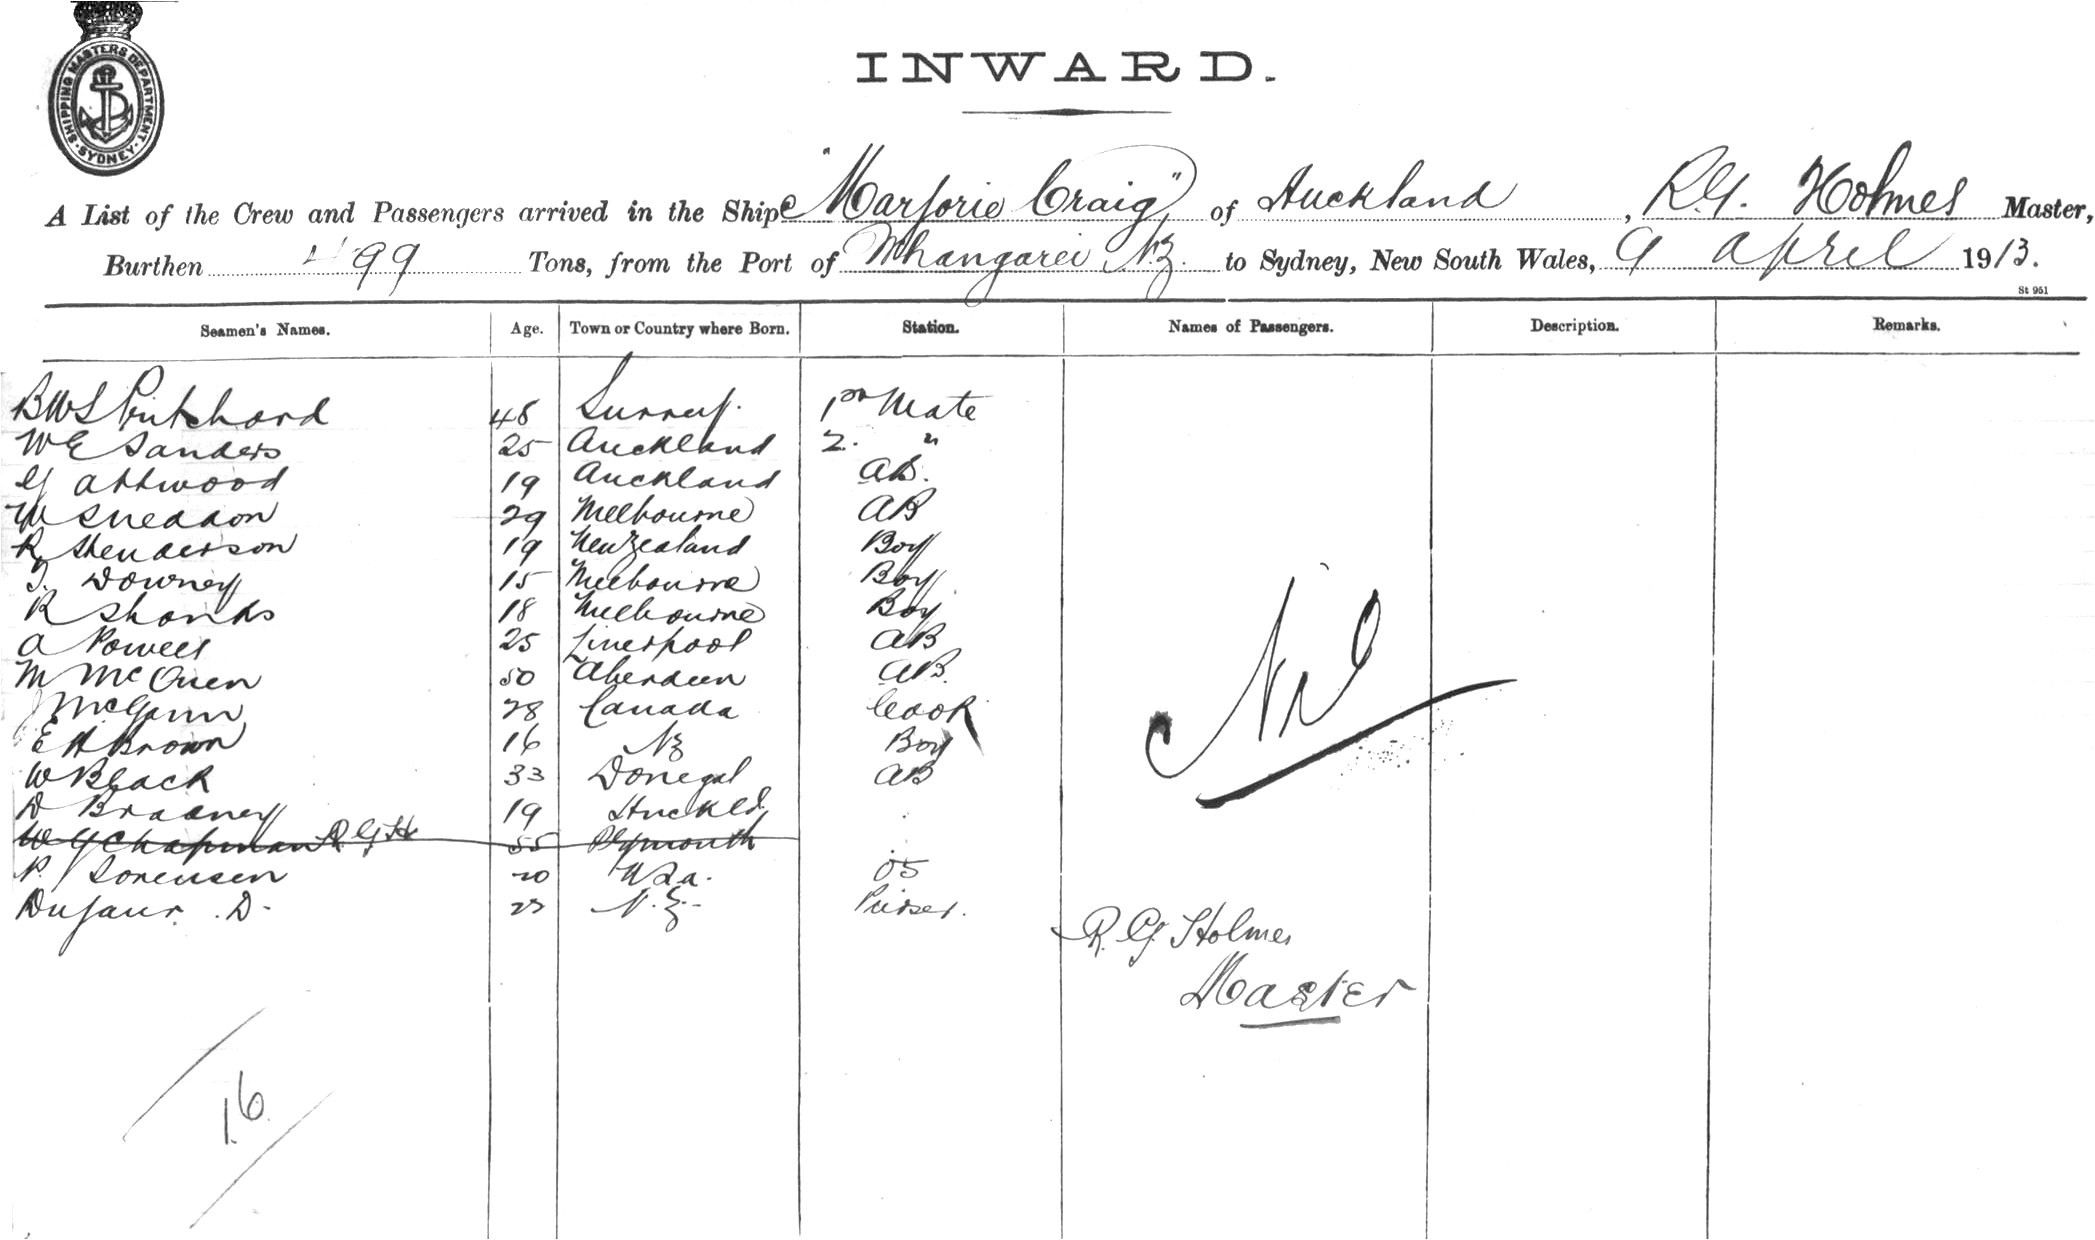 SHIPPING MASTERS DEPARTMENT
SYDNEY
INWARD.
A List of the Crew and Passengers arrived in the Ship "Marjorie Craig", of Auckland, R.G. Holmes Master,
Burthen 499 Tons, from the Port of Whangarei N.Z. to Sydney, New South Wales, 9 April 1913.
St 951
Seamen's Names. Age. Town or Country where Born. Station. Names of Passengers. Description. Remarks.
BWS Pritchard 48 Surrey. 1st Mate
W E Sanders 25 Auckland 2. "
G Attwood 19 Auckland AB.
W Sneddon 29 Melbourne AB
R Henderson 19 New Zealand Boy
T. Downey 15 Melbourne Boy
R Shanks 18 Melbourne Boy
A Powell 25 Liverpool AB
M McQueen 50 Aberdeen AB.
J McGann 28 Canada Cook
E H Brown 16 NZ Boy
W Black 33 Donegal AB
D Bradney 19 Auckld
W G Chapman R G H 55 Plymouth
P. Sorensen 20 OS
Dufaur. D. N.Z. Purser.
Nil
R. G. Holmes
Master
16